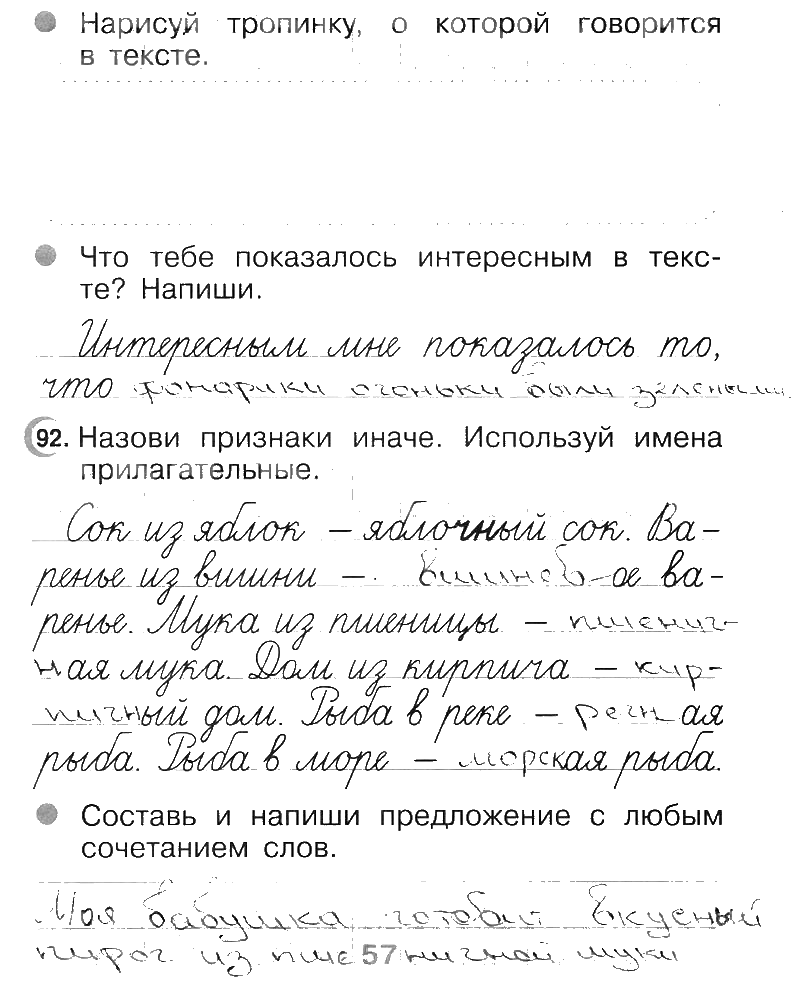 Нарисуй тропинку, о которой говорится
в тексте.
Что тебе показалось интересным в текс-
те? Напиши.
Интересным мне показалось то,
что фонарики огоньки были зелеными
92. Назови признаки иначе. Используй имена
прилагательные.
Сок из яблок – яблочный сок. Ва-
ренье из вишни – вишнев-ое ва-
ренье. Мука из пшеницы – пшенич-
ная мука. Дом из кирпича – кир-
пичный дом. Рыба в реке – речная
рыба. Рыба в море – морская рыба.
Составь и напиши предложение с любым
сочетанием слов.
Моя бабушка готовит вкусный
пирог из пше 57 ничной муки